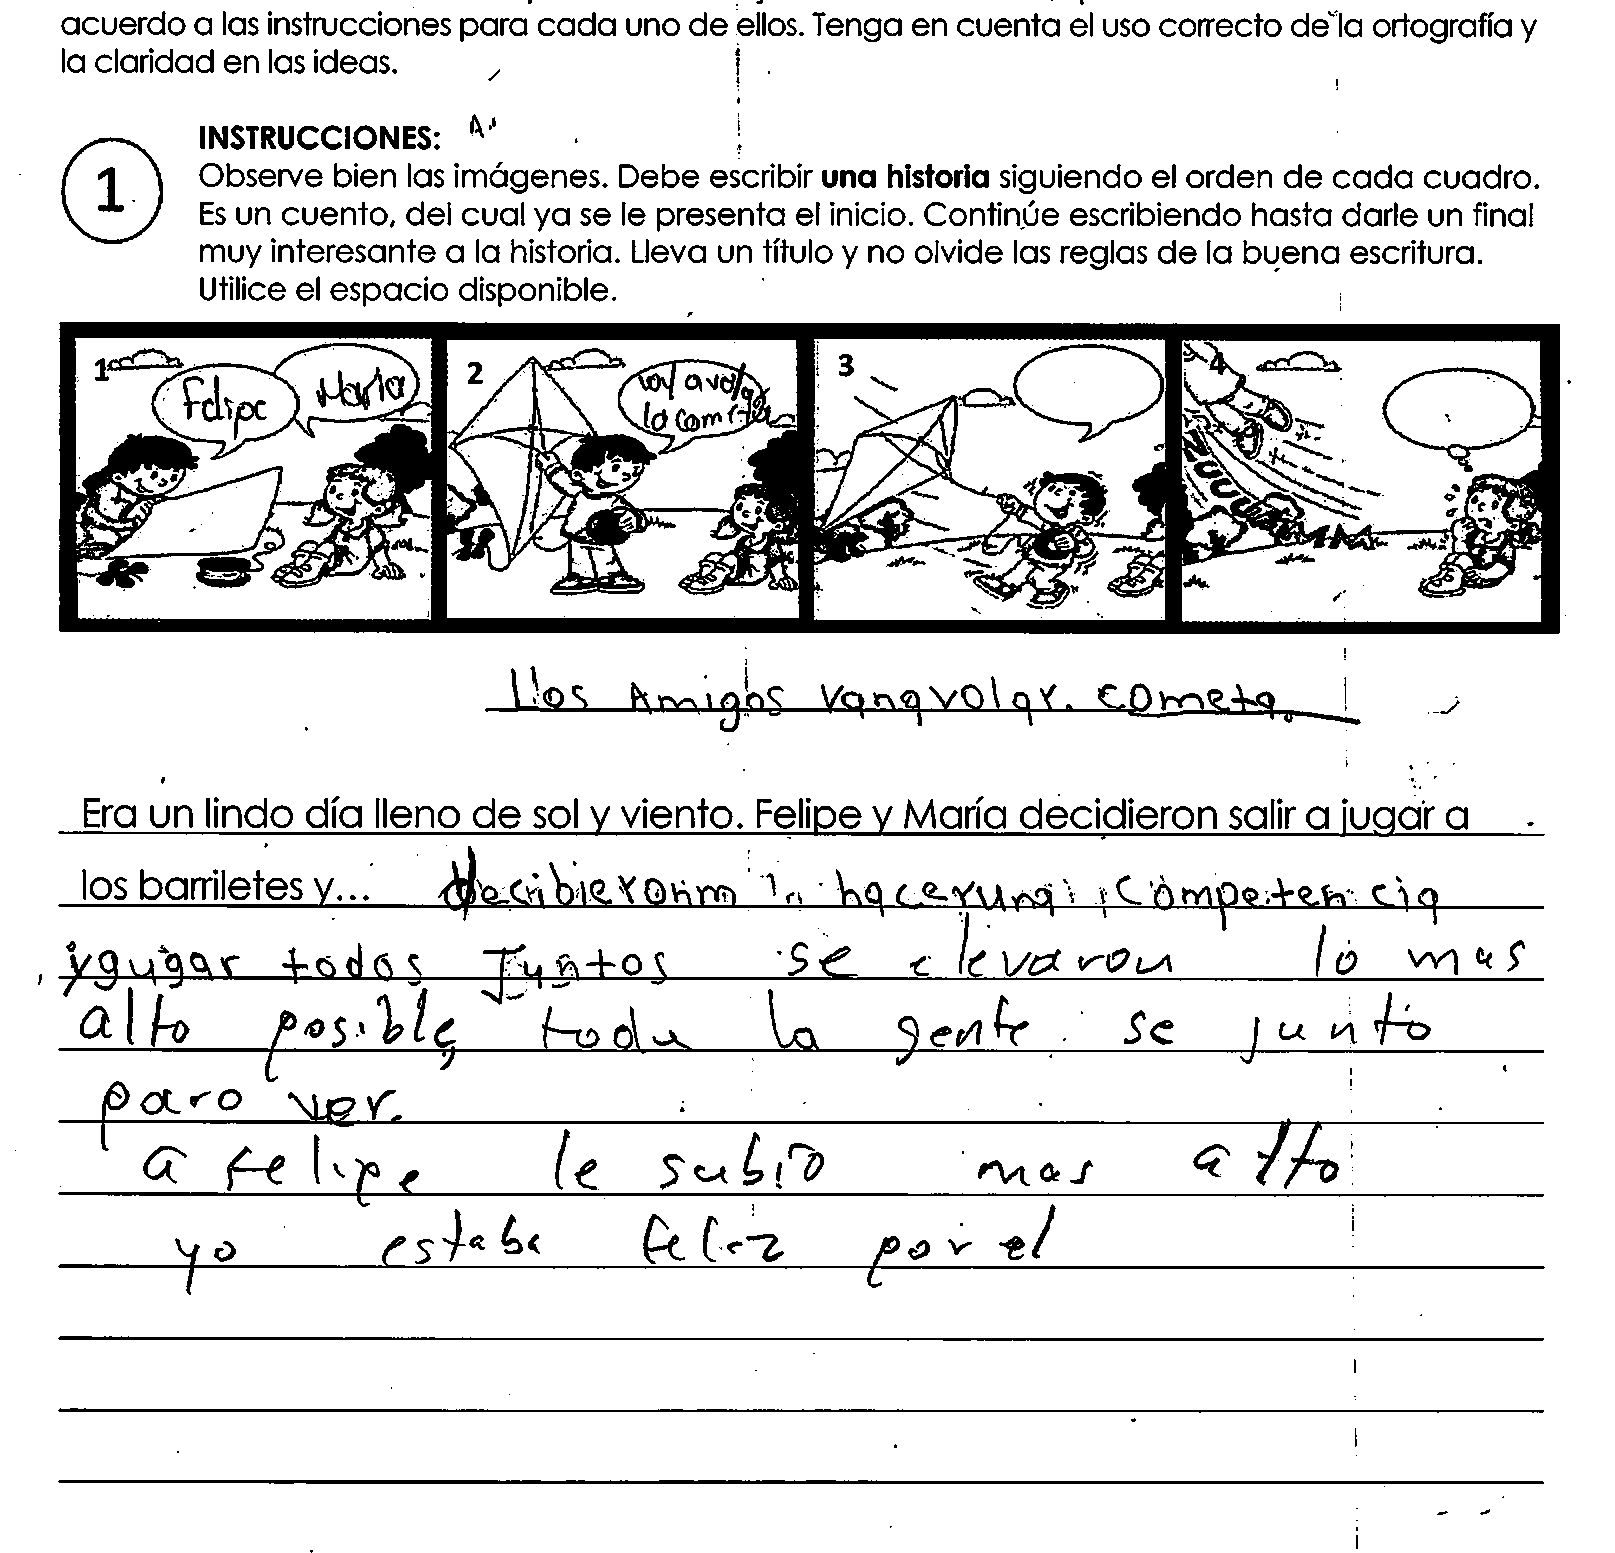 acuerdo a las instrucciones para cada uno de ellos. Tenga en cuenta el uso correcto de la ortografía y
la claridad en las ideas.
INSTRUCCIONES:
1
Observe bien las imágenes. Debe escribir una historia siguiendo el orden de cada cuadro.
Es un cuento, del cual ya se le presenta el inicio. Continúe escribiendo hasta darle un final
muy interesante a la historia. Lleva un título y no olvide las reglas de la buena escritura.
Utilice el espacio disponible.
1
Felipe
María
2
voy a volar
la cometa
3
4
ZUUUMMM
Llos Amigos vanavolar. cometa.
Era un lindo día lleno de sol y viento. Felipe y María decidieron salir a jugar a
los barriletes y... haceruna competencia
ygugar todos Juntos se elevaron lo mas
alto posible, toda la gente se junto
paro ver.
a felipe le subio mas alto
yo estaba feliz por el